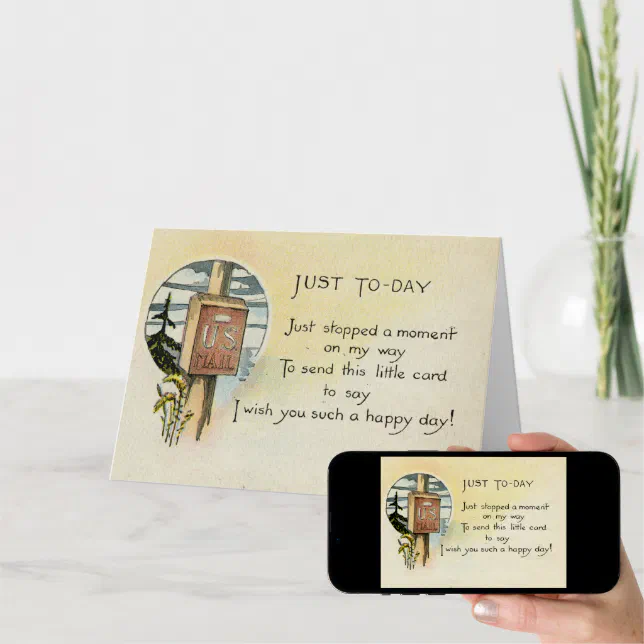 JUST TO-DAY
Just stopped a moment
on my way
To send this little card
to say
I wish you such a happy day!
U.S.
MAIL
JUST TO-DAY
Just stopped a moment
on my way
To send this little card
to say
I wish you such a happy day!
U.S.
MAIL